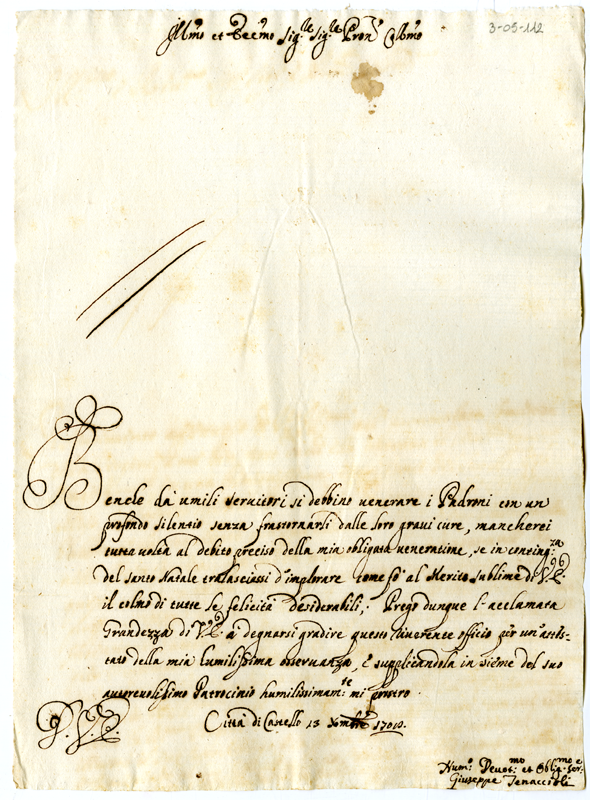 Ill.mo et Ecc.mo Sig.re Sig.re Pron. Colmo
3-05-112
Benche da umili servitori si debbino venerare i Padroni con un
profondo silentio senza frastornarli dalle loro gravi cure, mancherei
tutta volta al debito preciso della mia obligata veneratione, se in conting.za
del santo Natale tralasciassi d'implorare come fò al Merito sublime di V.E.
il colmo di tutte le felicità desiderabili; Prego dunque l'acclamata
Grandezza di V.E. à degnarsi gradire questo riverente officio per un attes-
tato della mia humilissima osservanza, e supplicandola in sieme del suo
autorevolissimo Patrocinio humilissimam.te mi prostro.
Città di Castello 13 Xmbre
Hum.o Devot.mo et Oblig.mo Ser.e
Giuseppe Tenaccioli